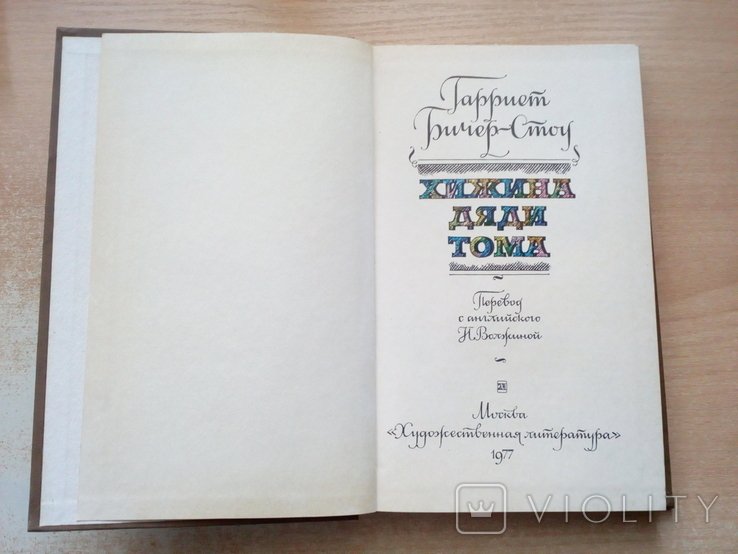 Гарриет
Бичер-Стоу
ХИЖИНА
ДЯДИ
ТОМА
Перевод
с английского
Н. Волжиной
Москва
«Художественная литература»
1977
VIOLITY